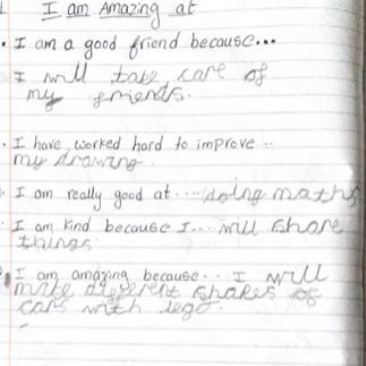 I am Amazing at
I am a good friend because...
I will take care of
my friends.
I have worked hard to improve..
my drawing.
I am really good at.... doing maths
I am kind because I.... will share
things
I am amazing because... I will
make different shapes of
cars with lego.